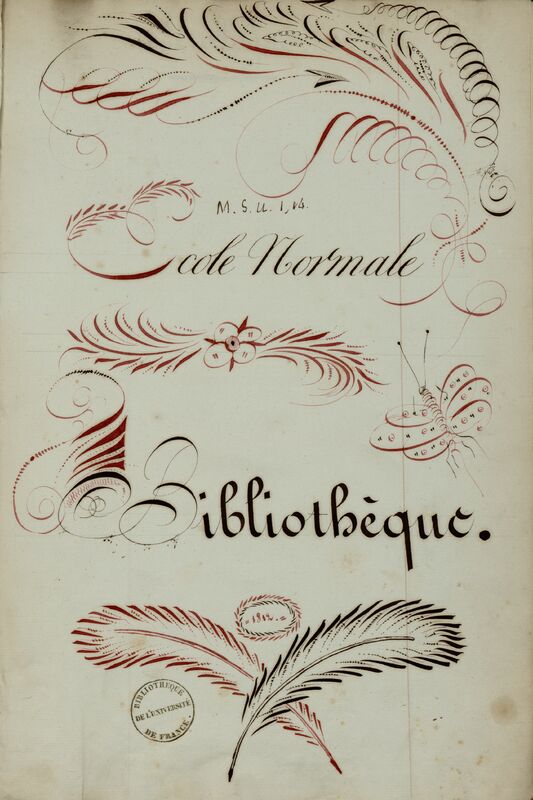 M. S. U. 1, 14.
Ecole Normale
Bibliothèque.
BIBLIOTHEQUE
DE L'UNIVERSITÉ
DE FRANCE.